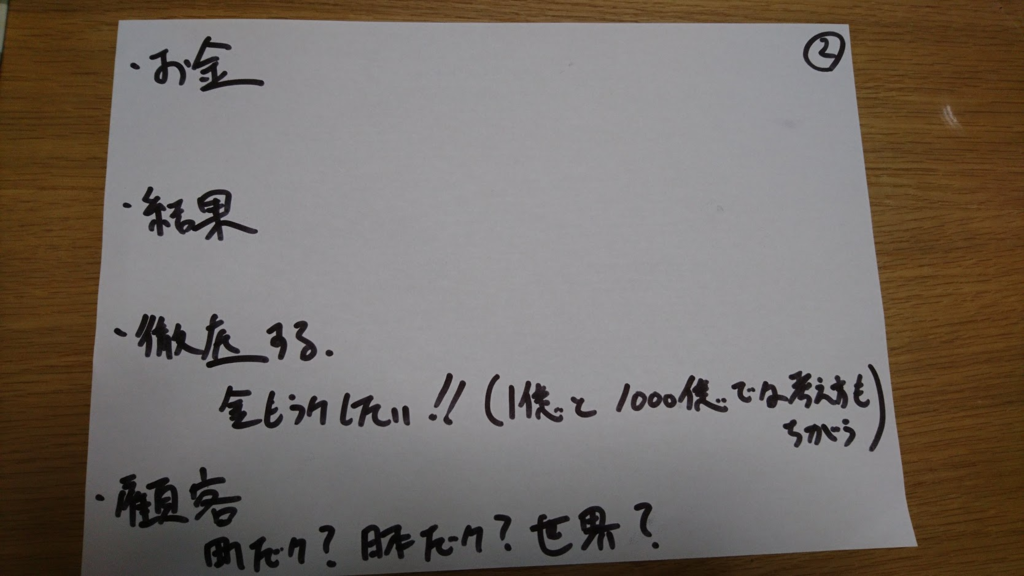 ②
・お金
・結果
・徹底する.
金もうけしたい!! (1億と 1000億では考え方も
ちがう)
・顧客
町だけ? 日本だけ? 世界?